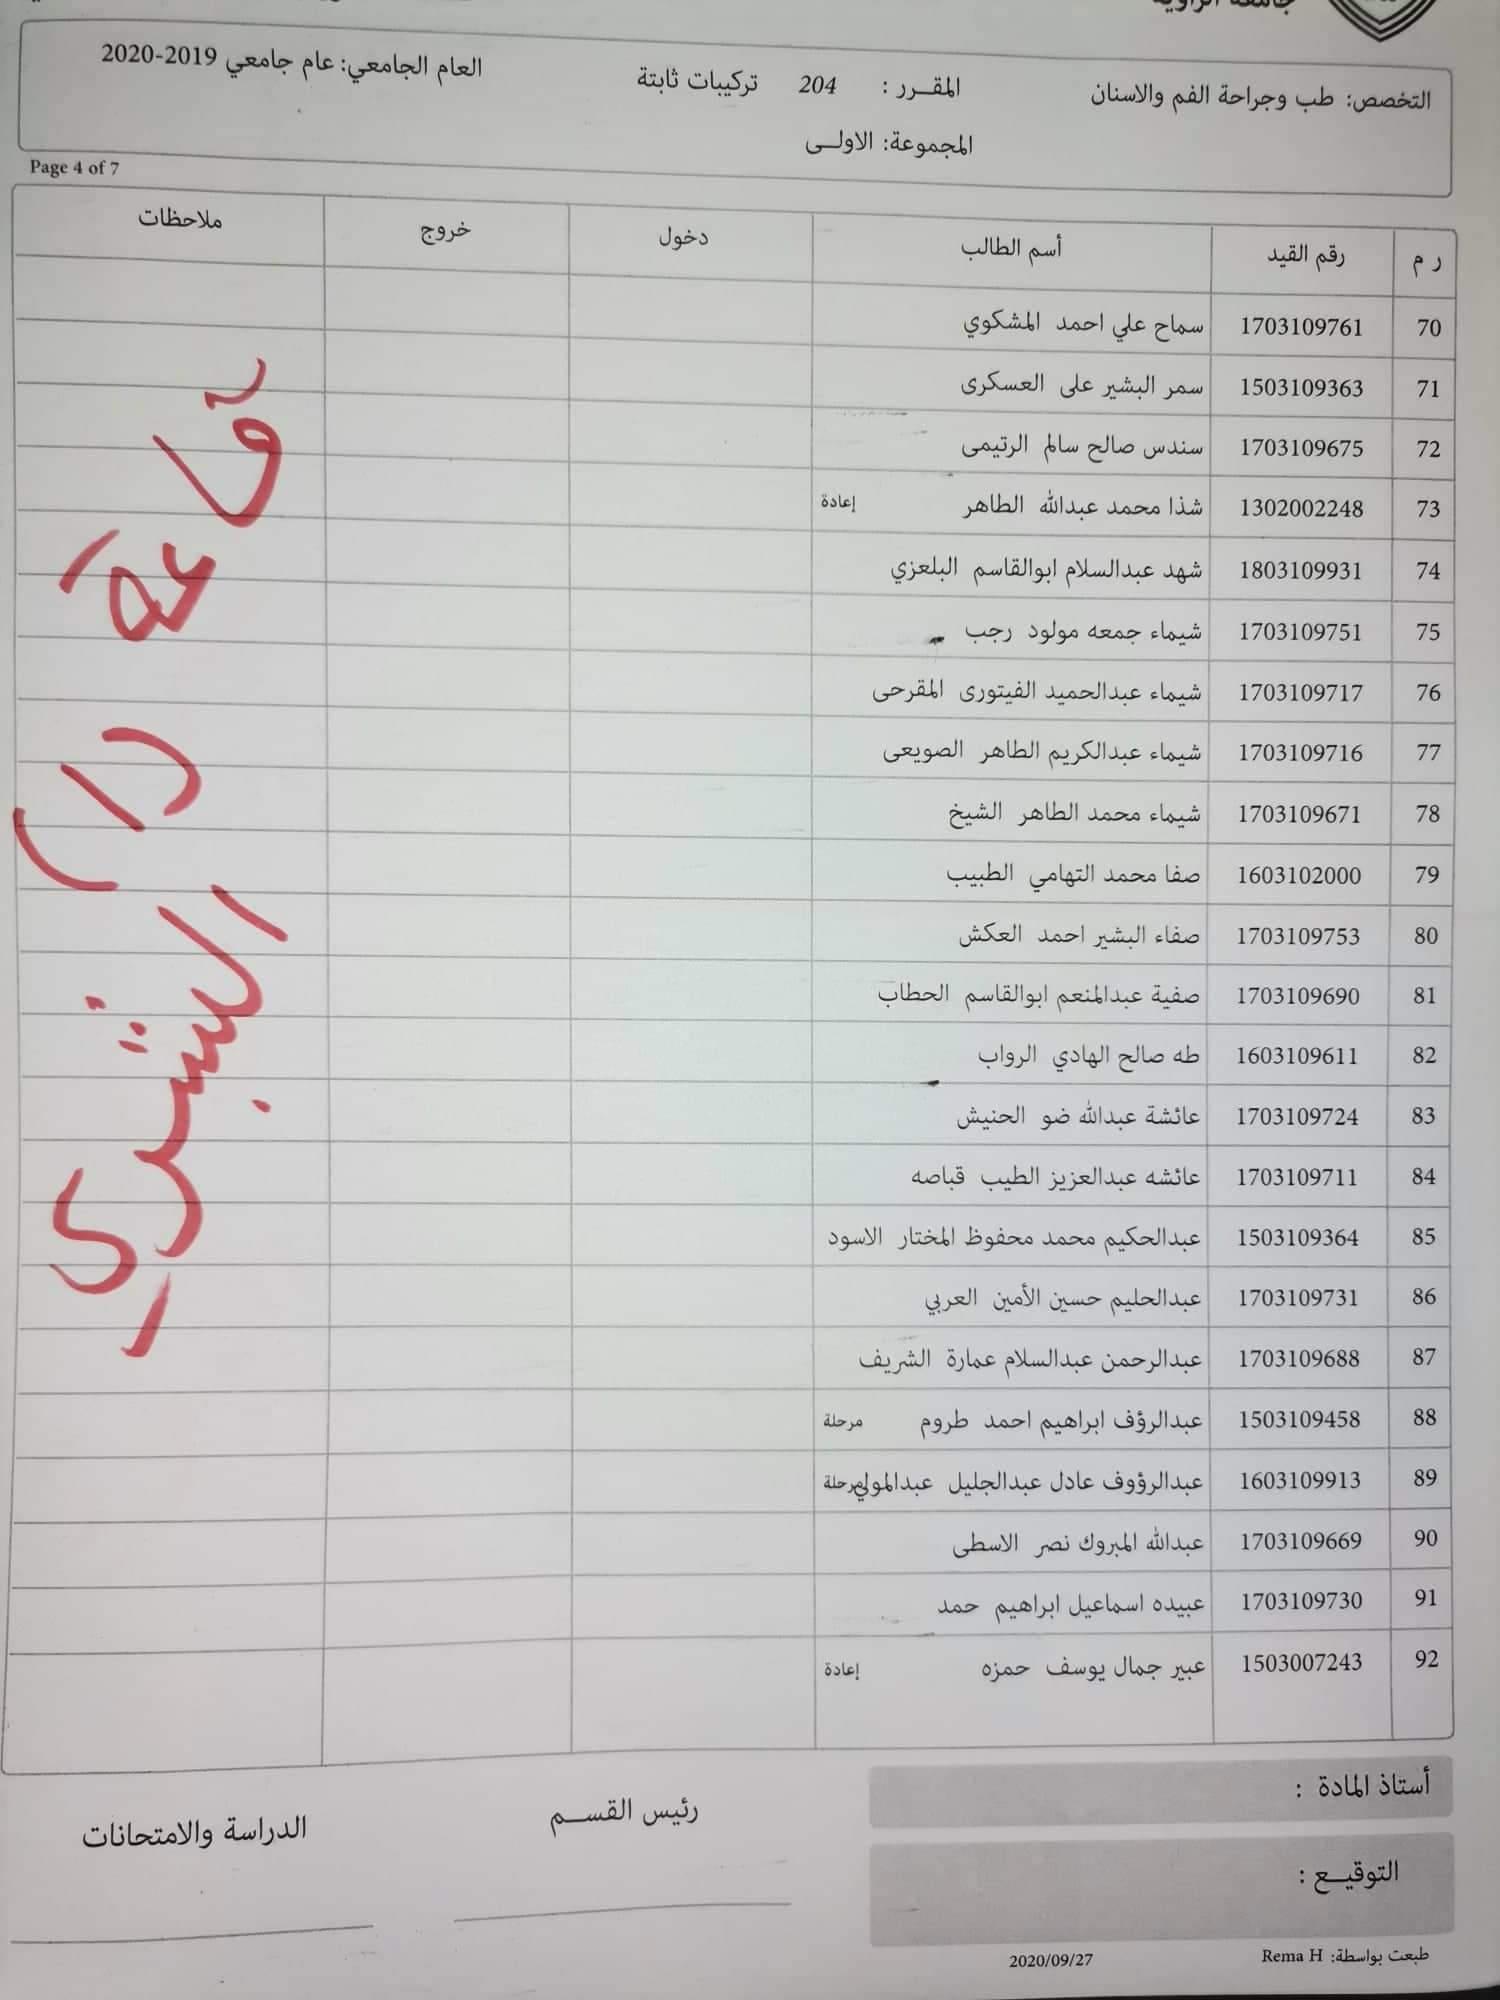 جامعة الزاوية
التخصص: طب وجراحة الفم والاسنان المقـرر : 204 تركيبات ثابتة العام الجامعي: عام جامعي 2019-2020
المجموعة: الاولـى
Page 4 of 7
ر م رقم القيد أسم الطالب دخول خروج ملاحظات
70 1703109761 سماح علي احمد المشكوي
71 1503109363 سمر البشير على العسكرى
72 1703109675 سندس صالح سالم الرتيمى
73 1302002248 شذا محمد عبدالله الطاهر إعادة
74 1803109931 شهد عبدالسلام ابوالقاسم البلعزي
75 1703109751 شيماء جمعه مولود رجب
76 1703109717 شيماء عبدالحميد الفيتورى المقرحى
77 1703109716 شيماء عبدالكريم الطاهر الصويعى
78 1703109671 شيماء محمد الطاهر الشيخ
79 1603102000 صفا محمد التهامي الطبيب
80 1703109753 صفاء البشير احمد العكش
81 1703109690 صفية عبدالمنعم ابوالقاسم الحطاب
82 1603109611 طه صالح الهادي الرواب
83 1703109724 عائشة عبدالله ضو الحنيش
84 1703109711 عائشه عبدالعزيز الطيب قباصه
85 1503109364 عبدالحكيم محمد محفوظ المختار الاسود
86 1703109731 عبدالحليم حسين الأمين العربي
87 1703109688 عبدالرحمن عبدالسلام عمارة الشريف
88 1503109458 عبدالرؤف ابراهيم احمد طروم مرحلة
89 1603109913 عبدالرؤوف عادل عبدالجليل عبدالمولي مرحلة
90 1703109669 عبدالله المبروك نصر الاسطى
91 1703109730 عبيده اسماعيل ابراهيم حمد
92 1503007243 عبير جمال يوسف حمزه إعادة
قاعة (1)
أستاذ المادة :
رئيس القســم
الدراسة والامتحانات
التوقيـع :
طبعت بواسطة: Rema H 2020/09/27